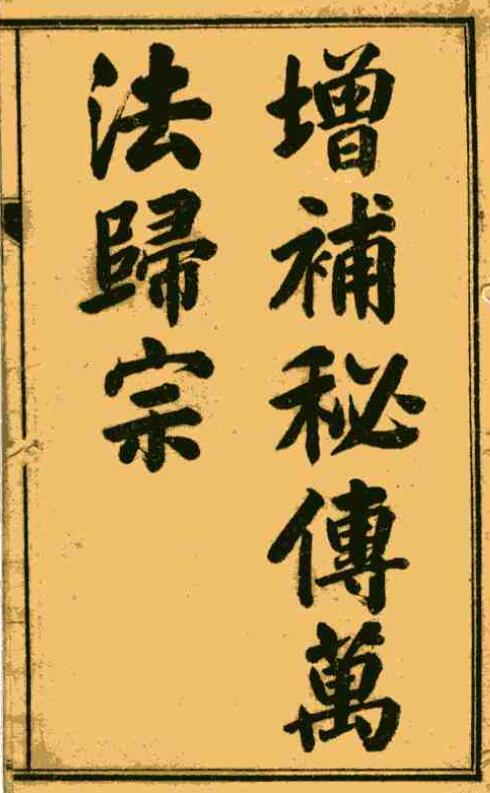 增補秘傳萬
法歸宗